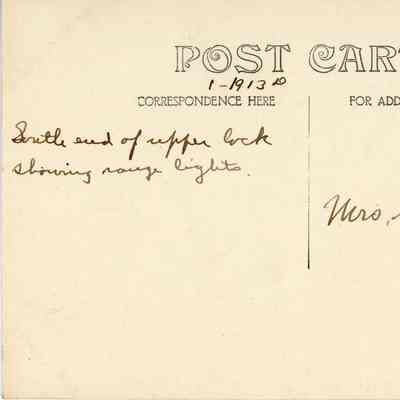 POST CAR
1-1913
CORRESPONDENCE HERE
FOR ADD
South end of upper lock
showing range lights.
Mrs,